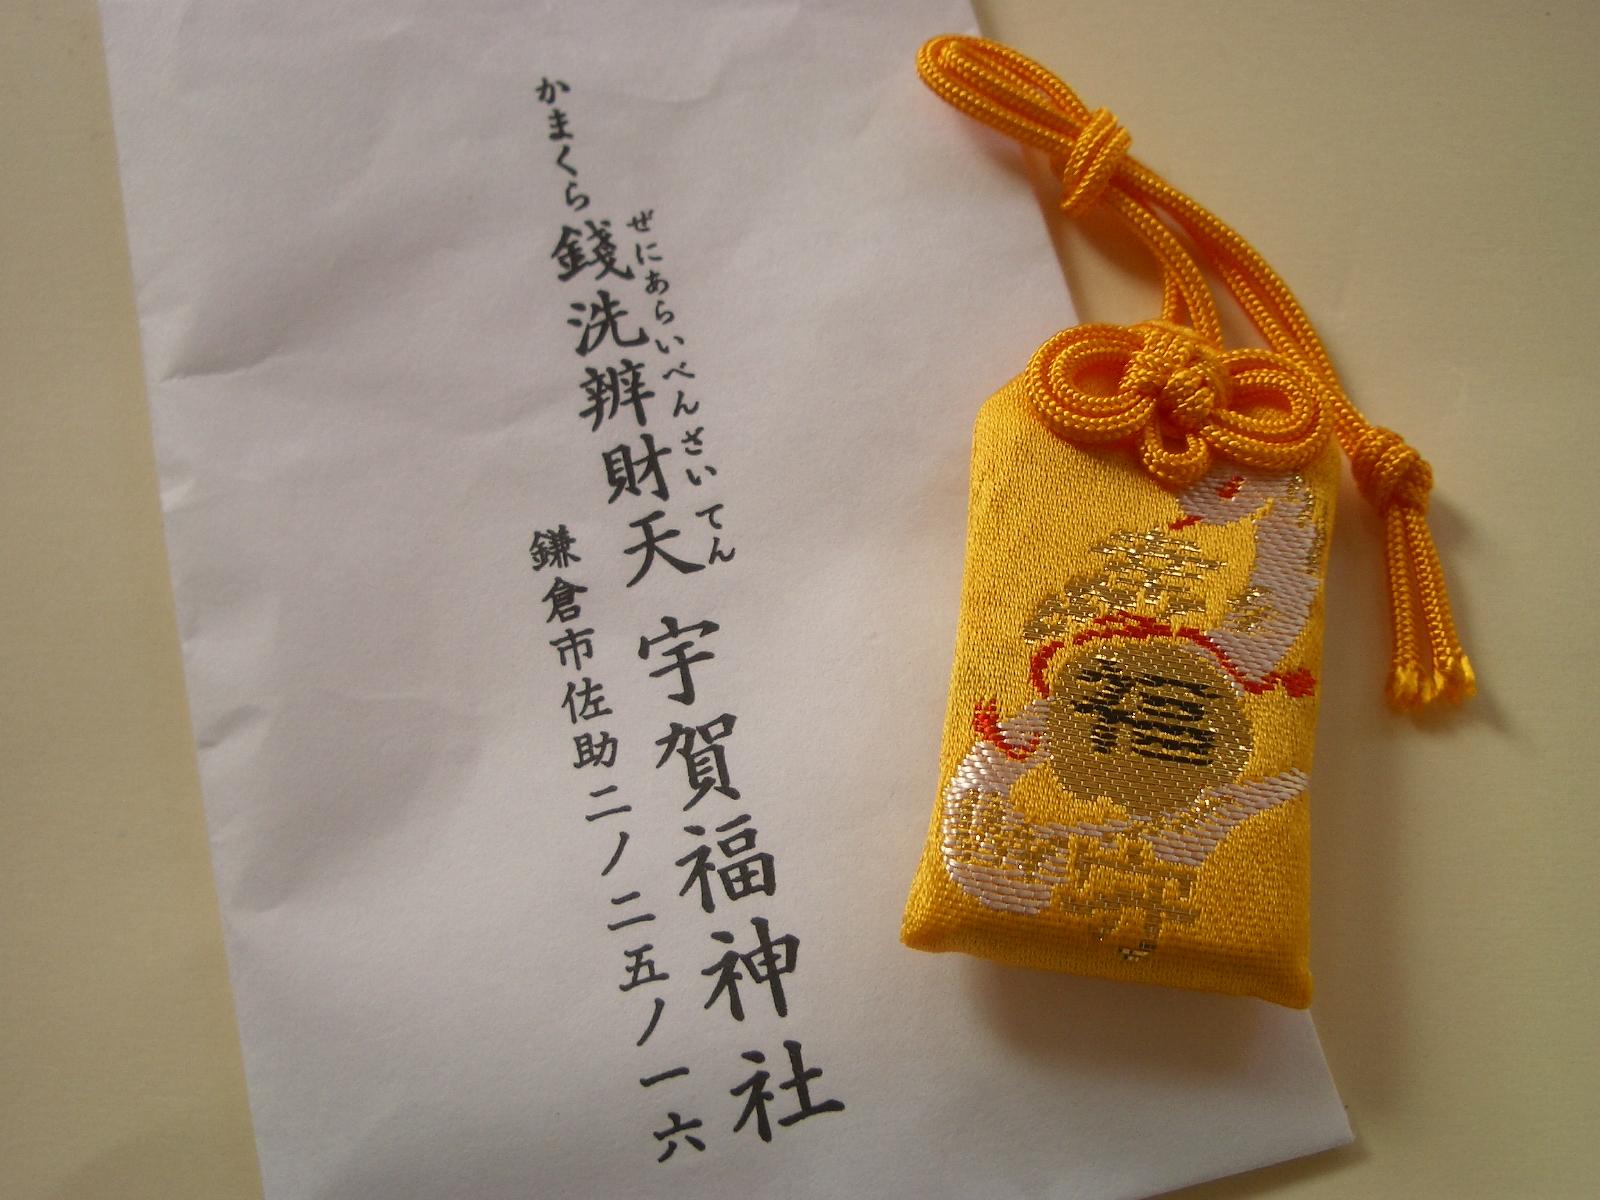 かまくら 錢洗辨財天 宇賀福神社
ぜにあらいべんざいてん
鎌倉市佐助二ノ二五ノ一六
福
守